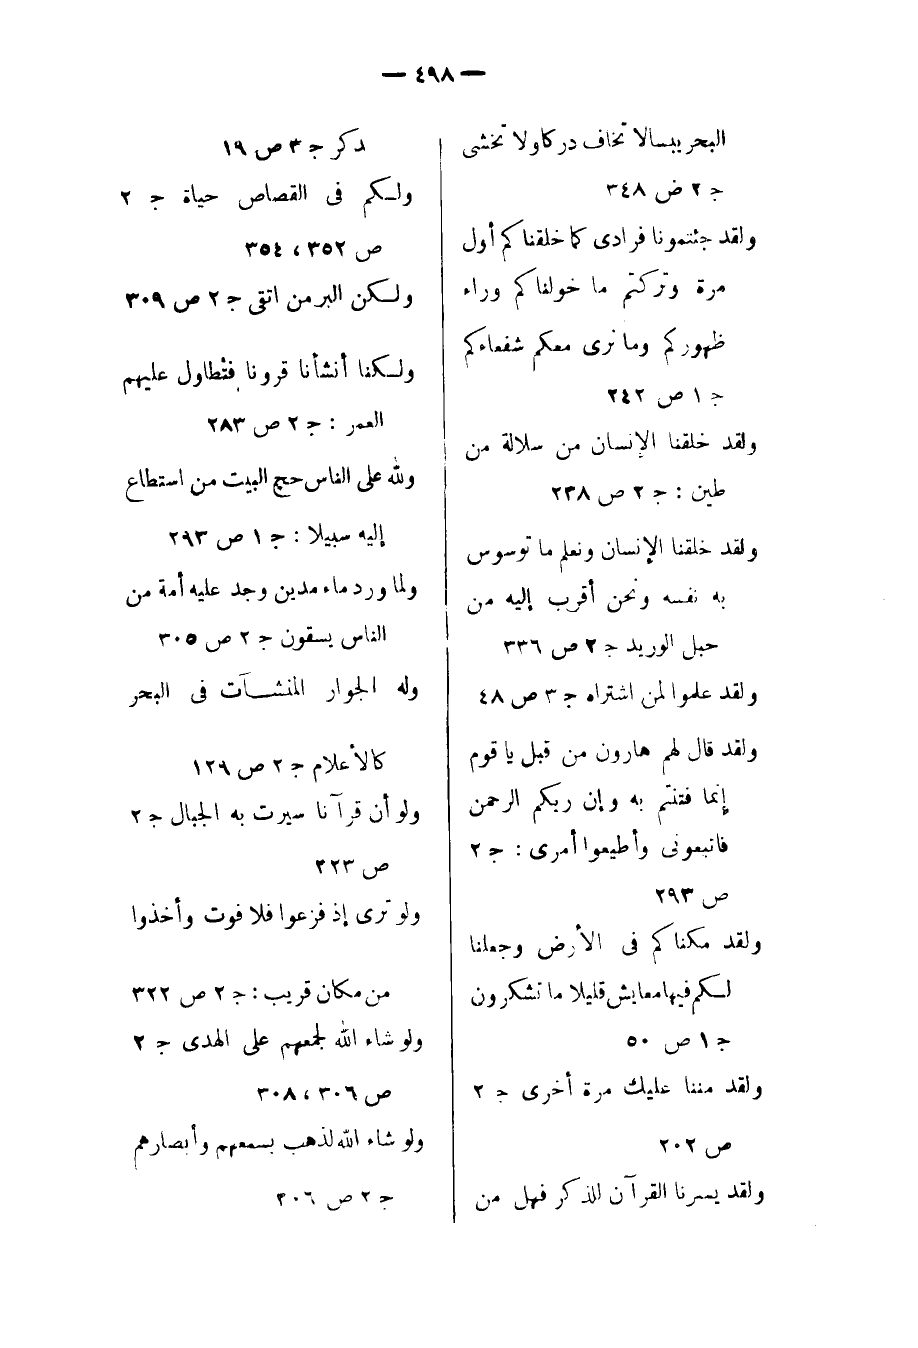 — ٤٩٨ —
البحر يبسا لا تخاف دركا ولا تخشى
ج ٢ ض ٣٤٨
ولقد جئتمونا فرادى كما خلقناكم أول
مرة وتركتم ما خولناكم وراء
ظهوركم وما نرى معكم شفعاءكم
ج ١ ص ٢٤٢
ولقد خلقنا الإنسان من سلالة من
طين : ج ٢ ص ٢٣٨
ولقد خلقنا الإنسان ونعلم ما توسوس
به نفسه ونحن أقرب إليه من
حبل الوريد ج ٢ ص ٣٣٦
ولقد علموا لمن اشتراه ج ٣ ص ٤٨
ولقد قال لهم هارون من قبل يا قوم
إنما فتنتم به وإن ربكم الرحمن
فاتبعونى وأطيعوا أمرى : ج ٢
ص ٢٩٣
ولقد مكناكم فى الأرض وجعلنا
لكم فيها معايش قليلا ما تشكرون
ج ١ ص ٥٠
ولقد مننا عليك مرة أخرى ج ٢
ص ٢٠٢
ولقد يسرنا القرآن للذكر فهل من
مدكر ج ٣ ص ١٩
ولكم فى القصاص حياة ج ٢
ص ٣٥٢ ، ٣٥٤
ولكن البر من اتقى ج ٢ ص ٣٠٩
ولكنا أنشأنا قرونا فتطاول عليهم
العمر : ج ٢ ص ٢٨٣
ولله على الناس حج البيت من استطاع
إليه سبيلا : ج ١ ص ٢٩٣
ولما ورد ماء مدين وجد عليه أمة من
الناس يسقون ج ٢ ص ٣٠٥
وله الجوار المنشآت فى البحر
كالأعلام ج ٢ ص ١٢٩
ولو أن قرآنا سيرت به الجبال ج ٢
ص ٣٢٣
ولو ترى إذ فزعوا فلا فوت وأخذوا
من مكان قريب : ج ٢ ص ٣٢٢
ولو شاء الله لجمعهم على الهدى ج ٢
ص ٣٠٦ ، ٣٠٨
ولو شاء الله لذهب بسمعهم وأبصارهم
ج ٢ ص ٢٠٦